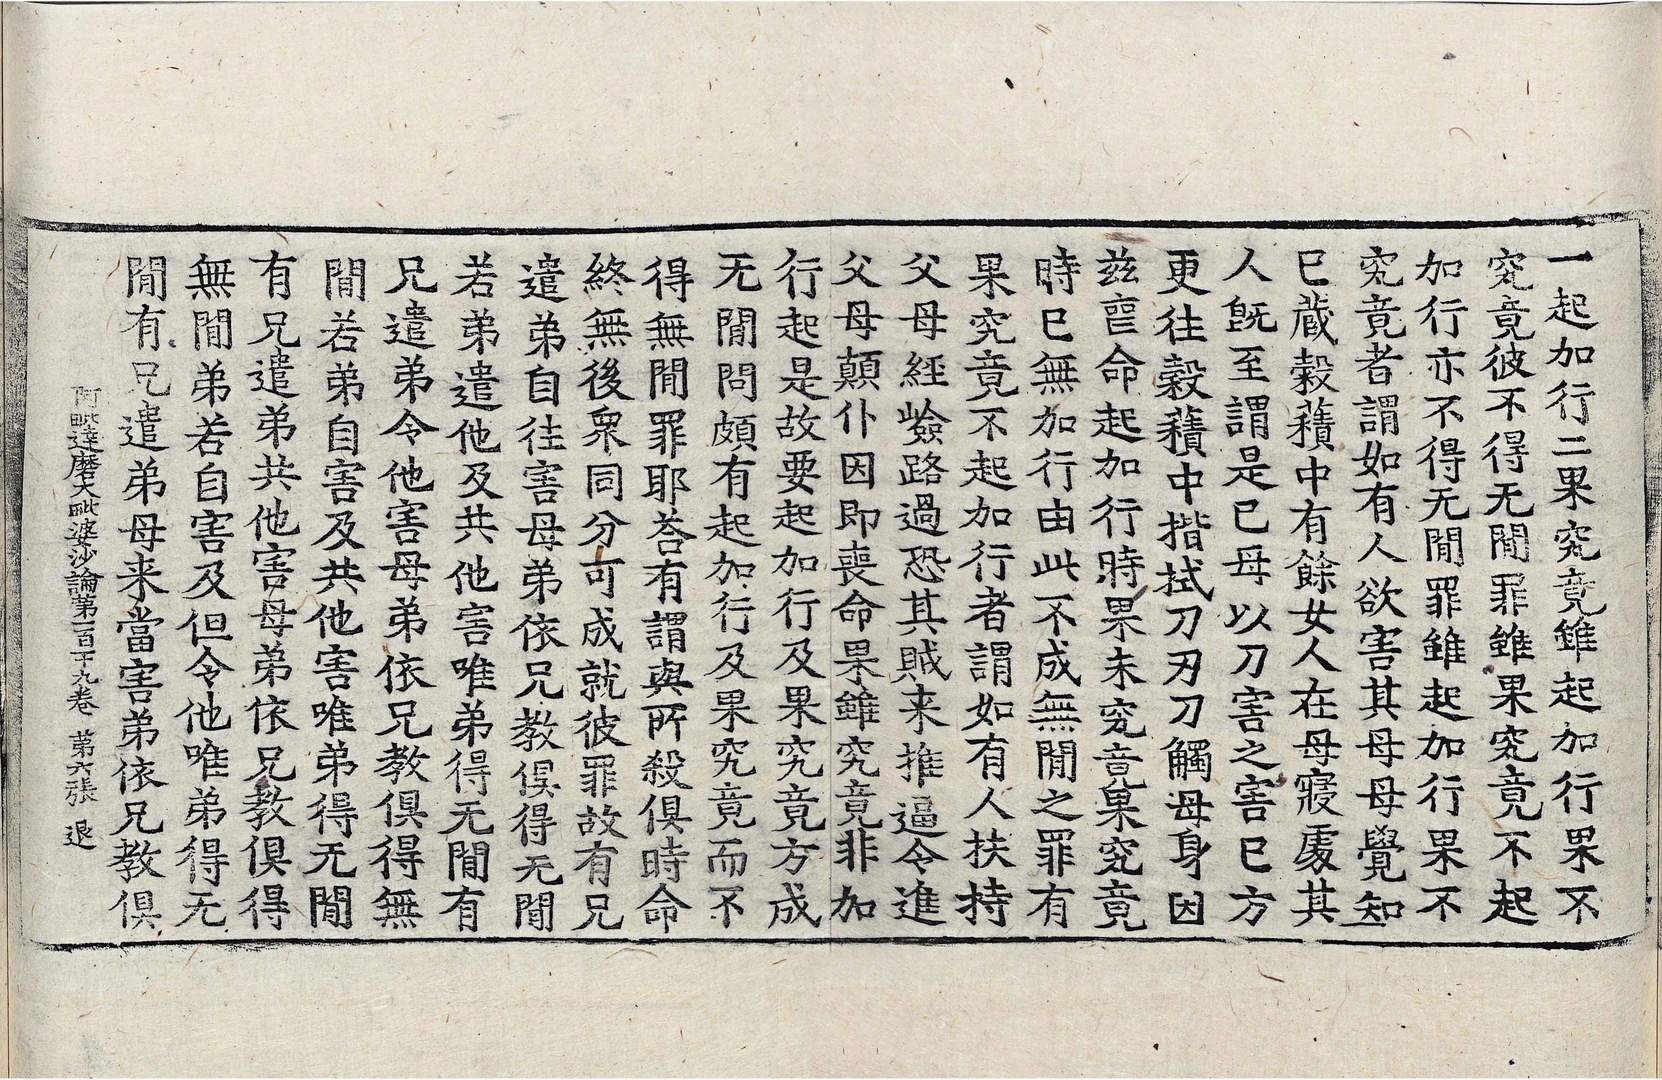 一起加行二果究竟雖起加行果不
究竟彼不得无閒罪雖果究竟不起
加行亦不得无閒罪雖起加行果不
究竟者謂如有人欲害其母母覺知
已藏穀䅳中有餘女人在母寢處其
人旣至謂是已母以刀害之害已方
更往穀䅳中揩拭刀刃刀觸母身因
兹喪命起加行時果未究竟果究竟
時已無加行由此不成無閒之罪有
果究竟不起加行者謂如有人扶持
父母經嶮路過恐其賊来推逼令進
父母顛仆因即喪命果雖究竟非加
行起是故要起加行及果究竟方成
无閒問頗有起加行及果究竟而不
得無閒罪耶荅有謂與所殺俱時命
終無後衆同分可成就彼罪故有兄
遣弟自往害母弟依兄教俱得无閒
若弟遣他及共他害唯弟得无閒有
兄遣弟令他害母弟依兄教俱得無
閒若弟自害及共他害唯弟得无閒
有兄遣弟共他害母弟依兄教俱得
無閒弟若自害及但令他唯弟得无
閒有兄遣弟母来當害弟依兄教俱
阿毗達磨大毗婆沙論第一百十九卷 第六張 退